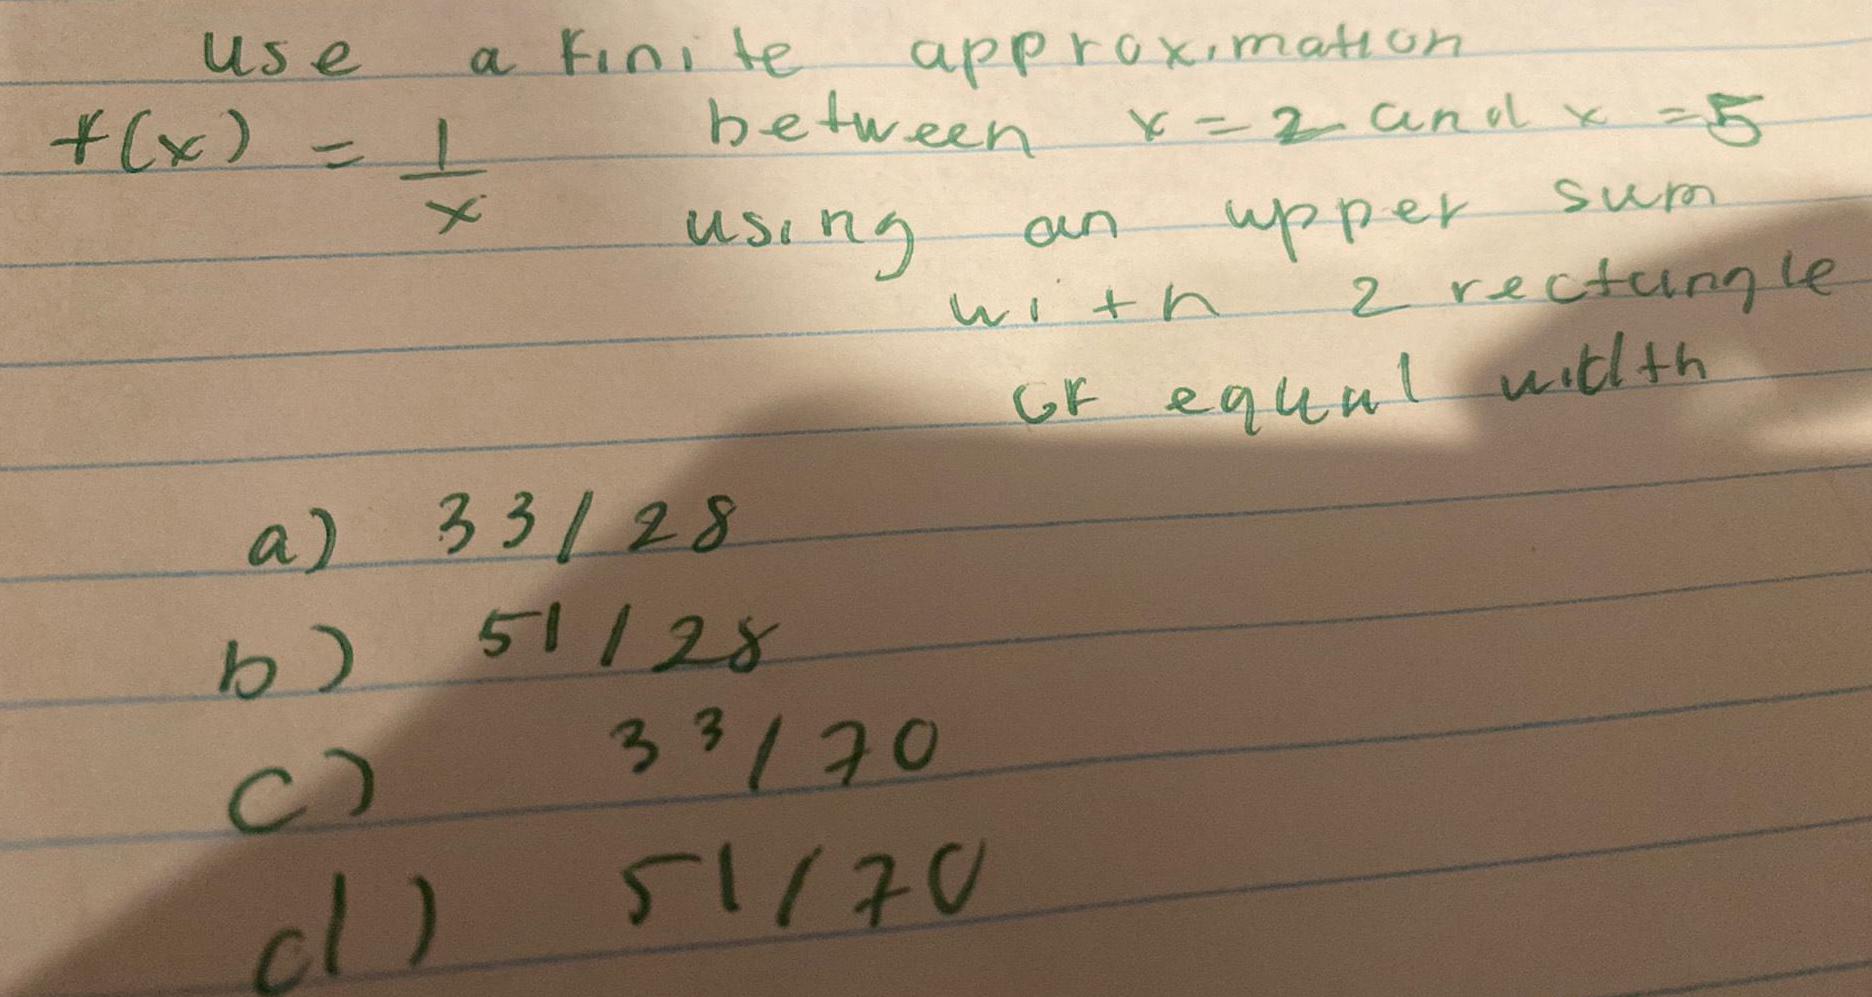 use a finite approximation
f(x) = 1/x between x = 2 and x = 5
using an upper sum
with 2 rectangle
of equal width
a) 33/28
b) 51/28
c) 33/70
d) 51/70